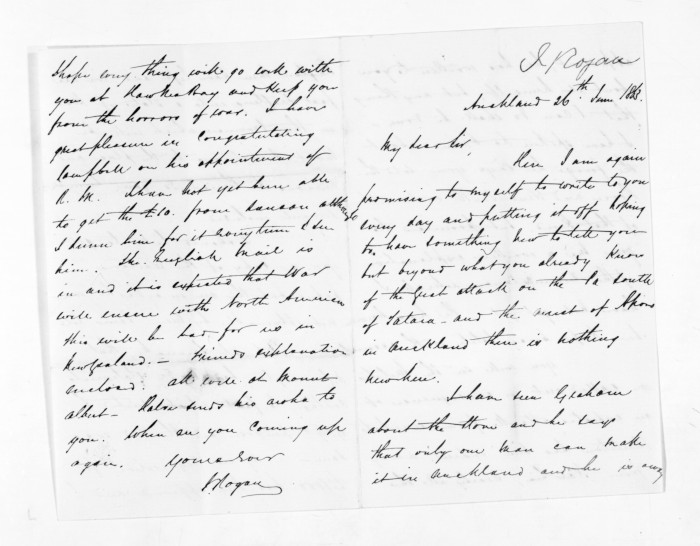 J Rogan
Auckland 26th June 1863.
My dear Sir,
Here I am again
promising to myself to write to you
every day and putting it off hoping
to have something new to tell you
but beyond what you already know
of the Great attack on the Pa south
of Tatara - and the arrest of
in Auckland there is nothing
new here.
I have seen Graham
about the stove and he says
that only one man can make
it in Auckland and he is away
I hope every thing will go well with
you at Hawkes Bay and keep you
from the horrors of war. I have
great pleasure in congratulating
Campbell on his appointment of
R. M. I have not yet been able
to get the £10. from although
I him for it every time I see
him. The English Mail is
in and it is expected that War
will ensue with North American
this will be bad for us in
New Zealand. - explanation
enclosed. All well at Mount
Albert - sends his aroha to
you. When are you coming up
again. Yours Ever
J Rogan